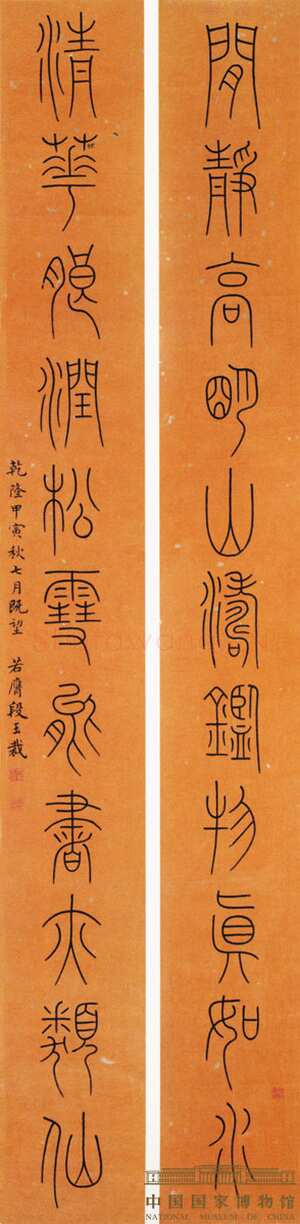 閒靜高朙山濤鑑物眞如水
清華朖潤松雪能書亦類仙
乾隆甲寅秋七月既望 若膺段玉裁
中国国家博物馆
NATIONAL MUSEUM OF CHINA